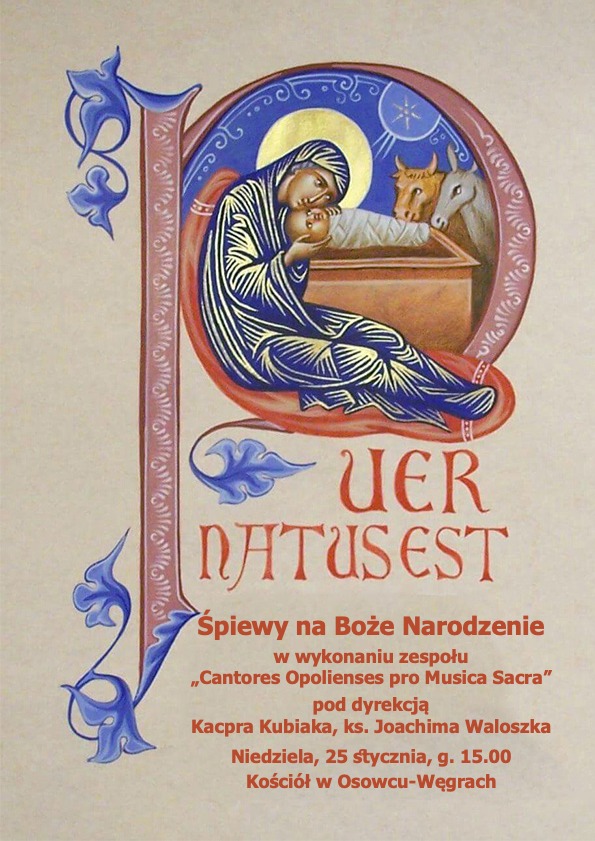 PUER
NATUS EST
Śpiewy na Boże Narodzenie
w wykonaniu zespołu
„Cantores Opolienses pro Musica Sacra”
pod dyrekcją
Kacpra Kubiaka, ks. Joachima Waloszka
Niedziela, 25 stycznia, g. 15.00
Kościół w Osowcu-Węgrach